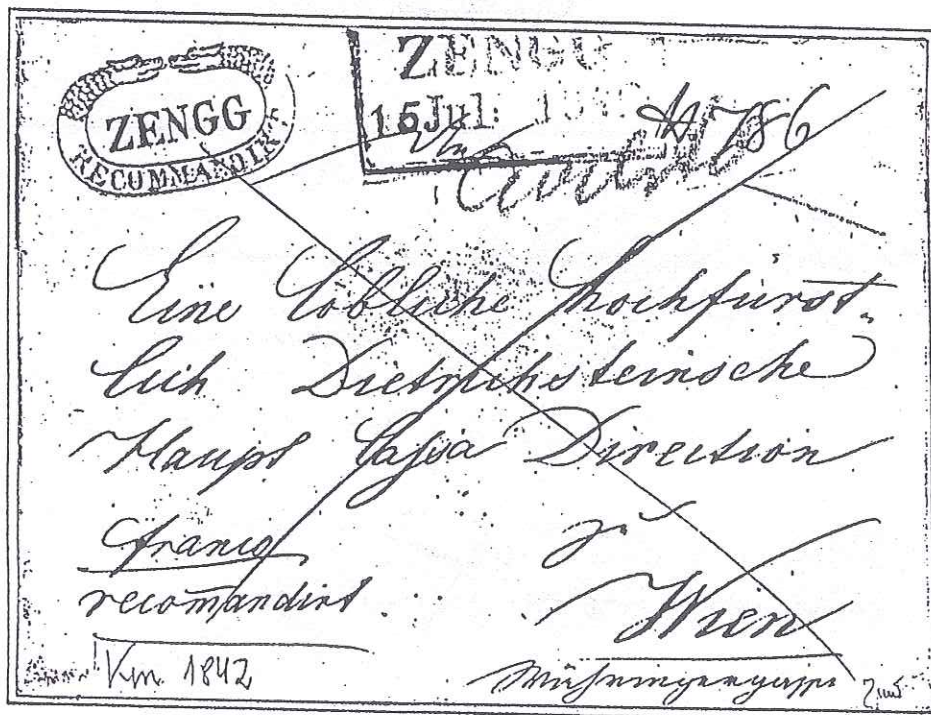 ZENGG
RECOMMANDIRT
ZENGG
15 Jul:
786
An
Eine Löbliche Hochfürst-
lich Dietrichsteinsche
Haupt Cassa Direction
franco
zu
recomandirt
Wien
Km 1842